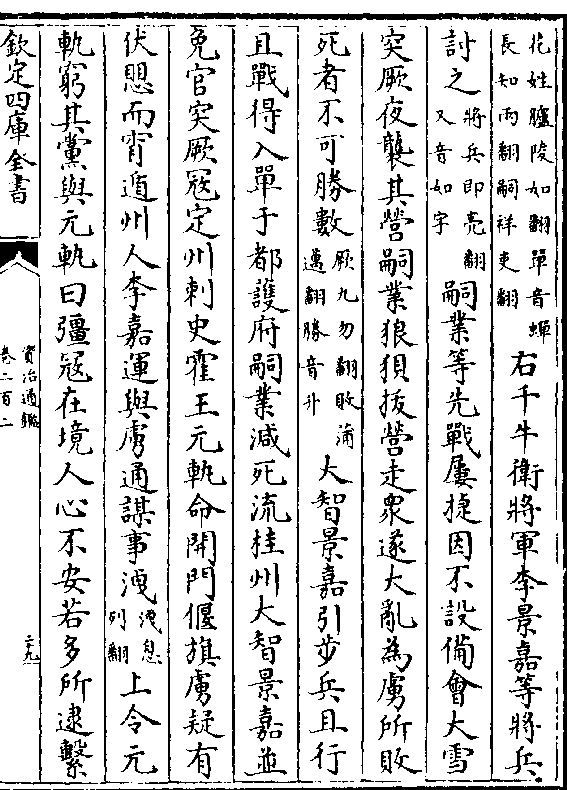 花姓臚陵如翻單音蟬
長知兩翻嗣祥吏翻
右千牛衛將軍李景嘉等將兵
討之
將兵即亮翻
又音如字
嗣業等先戰屢捷因不設備會大雪
突厥夜襲其營嗣業狼狽拔營走衆遂大亂為虜所敗
死者不可勝數
厥九勿翻敗蒲
邁翻勝音升
大智景嘉引步兵且行
且戰得入單于都護府嗣業減死流桂州大智景嘉並
免官突厥冦定州刺史霍王元軌命開門偃旗虜疑有
伏愳而宵遁州人李嘉運與虜通謀事洩
洩息
列翻
上令元
軌窮其黨與元軌曰彊冦在境人心不安若多所逮繫
欽定四庫全書
資治通鑑
卷二百二
二九